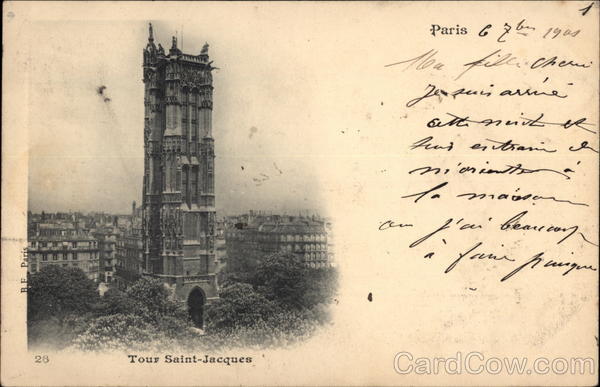 1
Paris 6 7bre 1901
Ma fille cherie
Je suis arrivé
cette nuit et
suis en train de
m'orienter à
la maison
où j'ai beaucoup
à faire puisque
B.F. Paris
28 Tour Saint-Jacques
CardCow.com